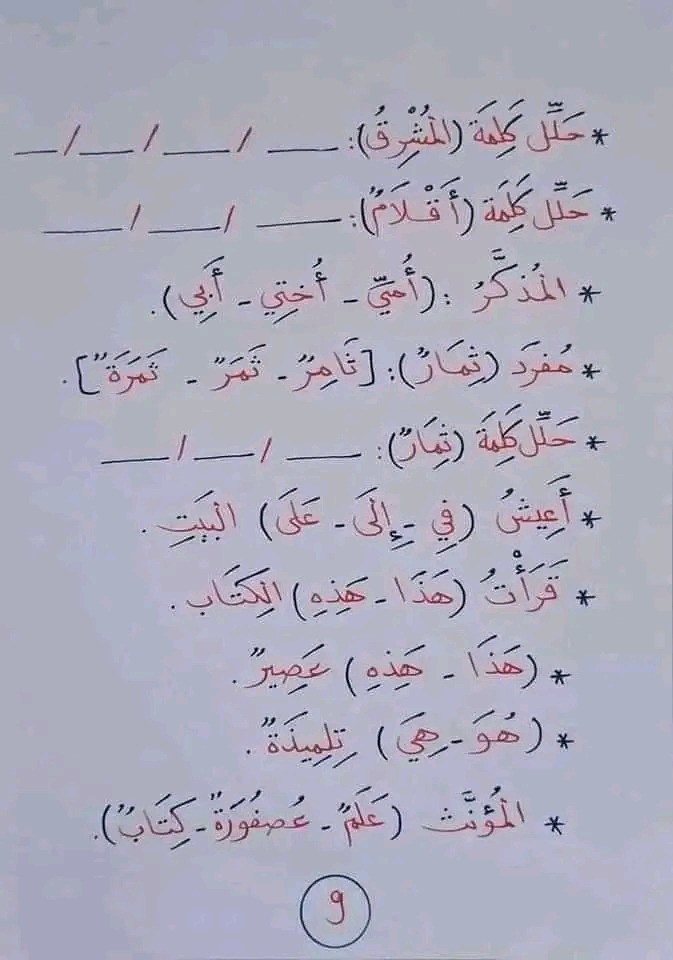 * حَلِّل كَلِمَة (الْمُشْرِقُ): ___ / ___ / ___ / ___
* حَلِّل كَلِمَة (أَقْلَامٌ): ___ / ___ / ___
* الْمُذَكَّرُ : (أُمِّي - أُختِي - أَبِي).
* مُفرَد (ثِمَارٌ): [ثَامِرٌ - ثَمَرٌ - ثَمَرَةٌ].
* حَلِّل كَلِمَة (ثِمَارٌ): ___ / ___ / ___
* أَعِيشُ (فِي - إِلَى - عَلَى) الْبَيتِ.
* قَرَأْتُ (هَذَا - هَذِهِ) الكِتَاب.
* (هَذَا - هَذِهِ) عَصِيرٌ.
* (هُوَ - هِيَ) تِلمِيذَةٌ.
* الْمُؤَنَّث (عَلَمٌ - عُصفُورَةٌ - كِتَابٌ).
9